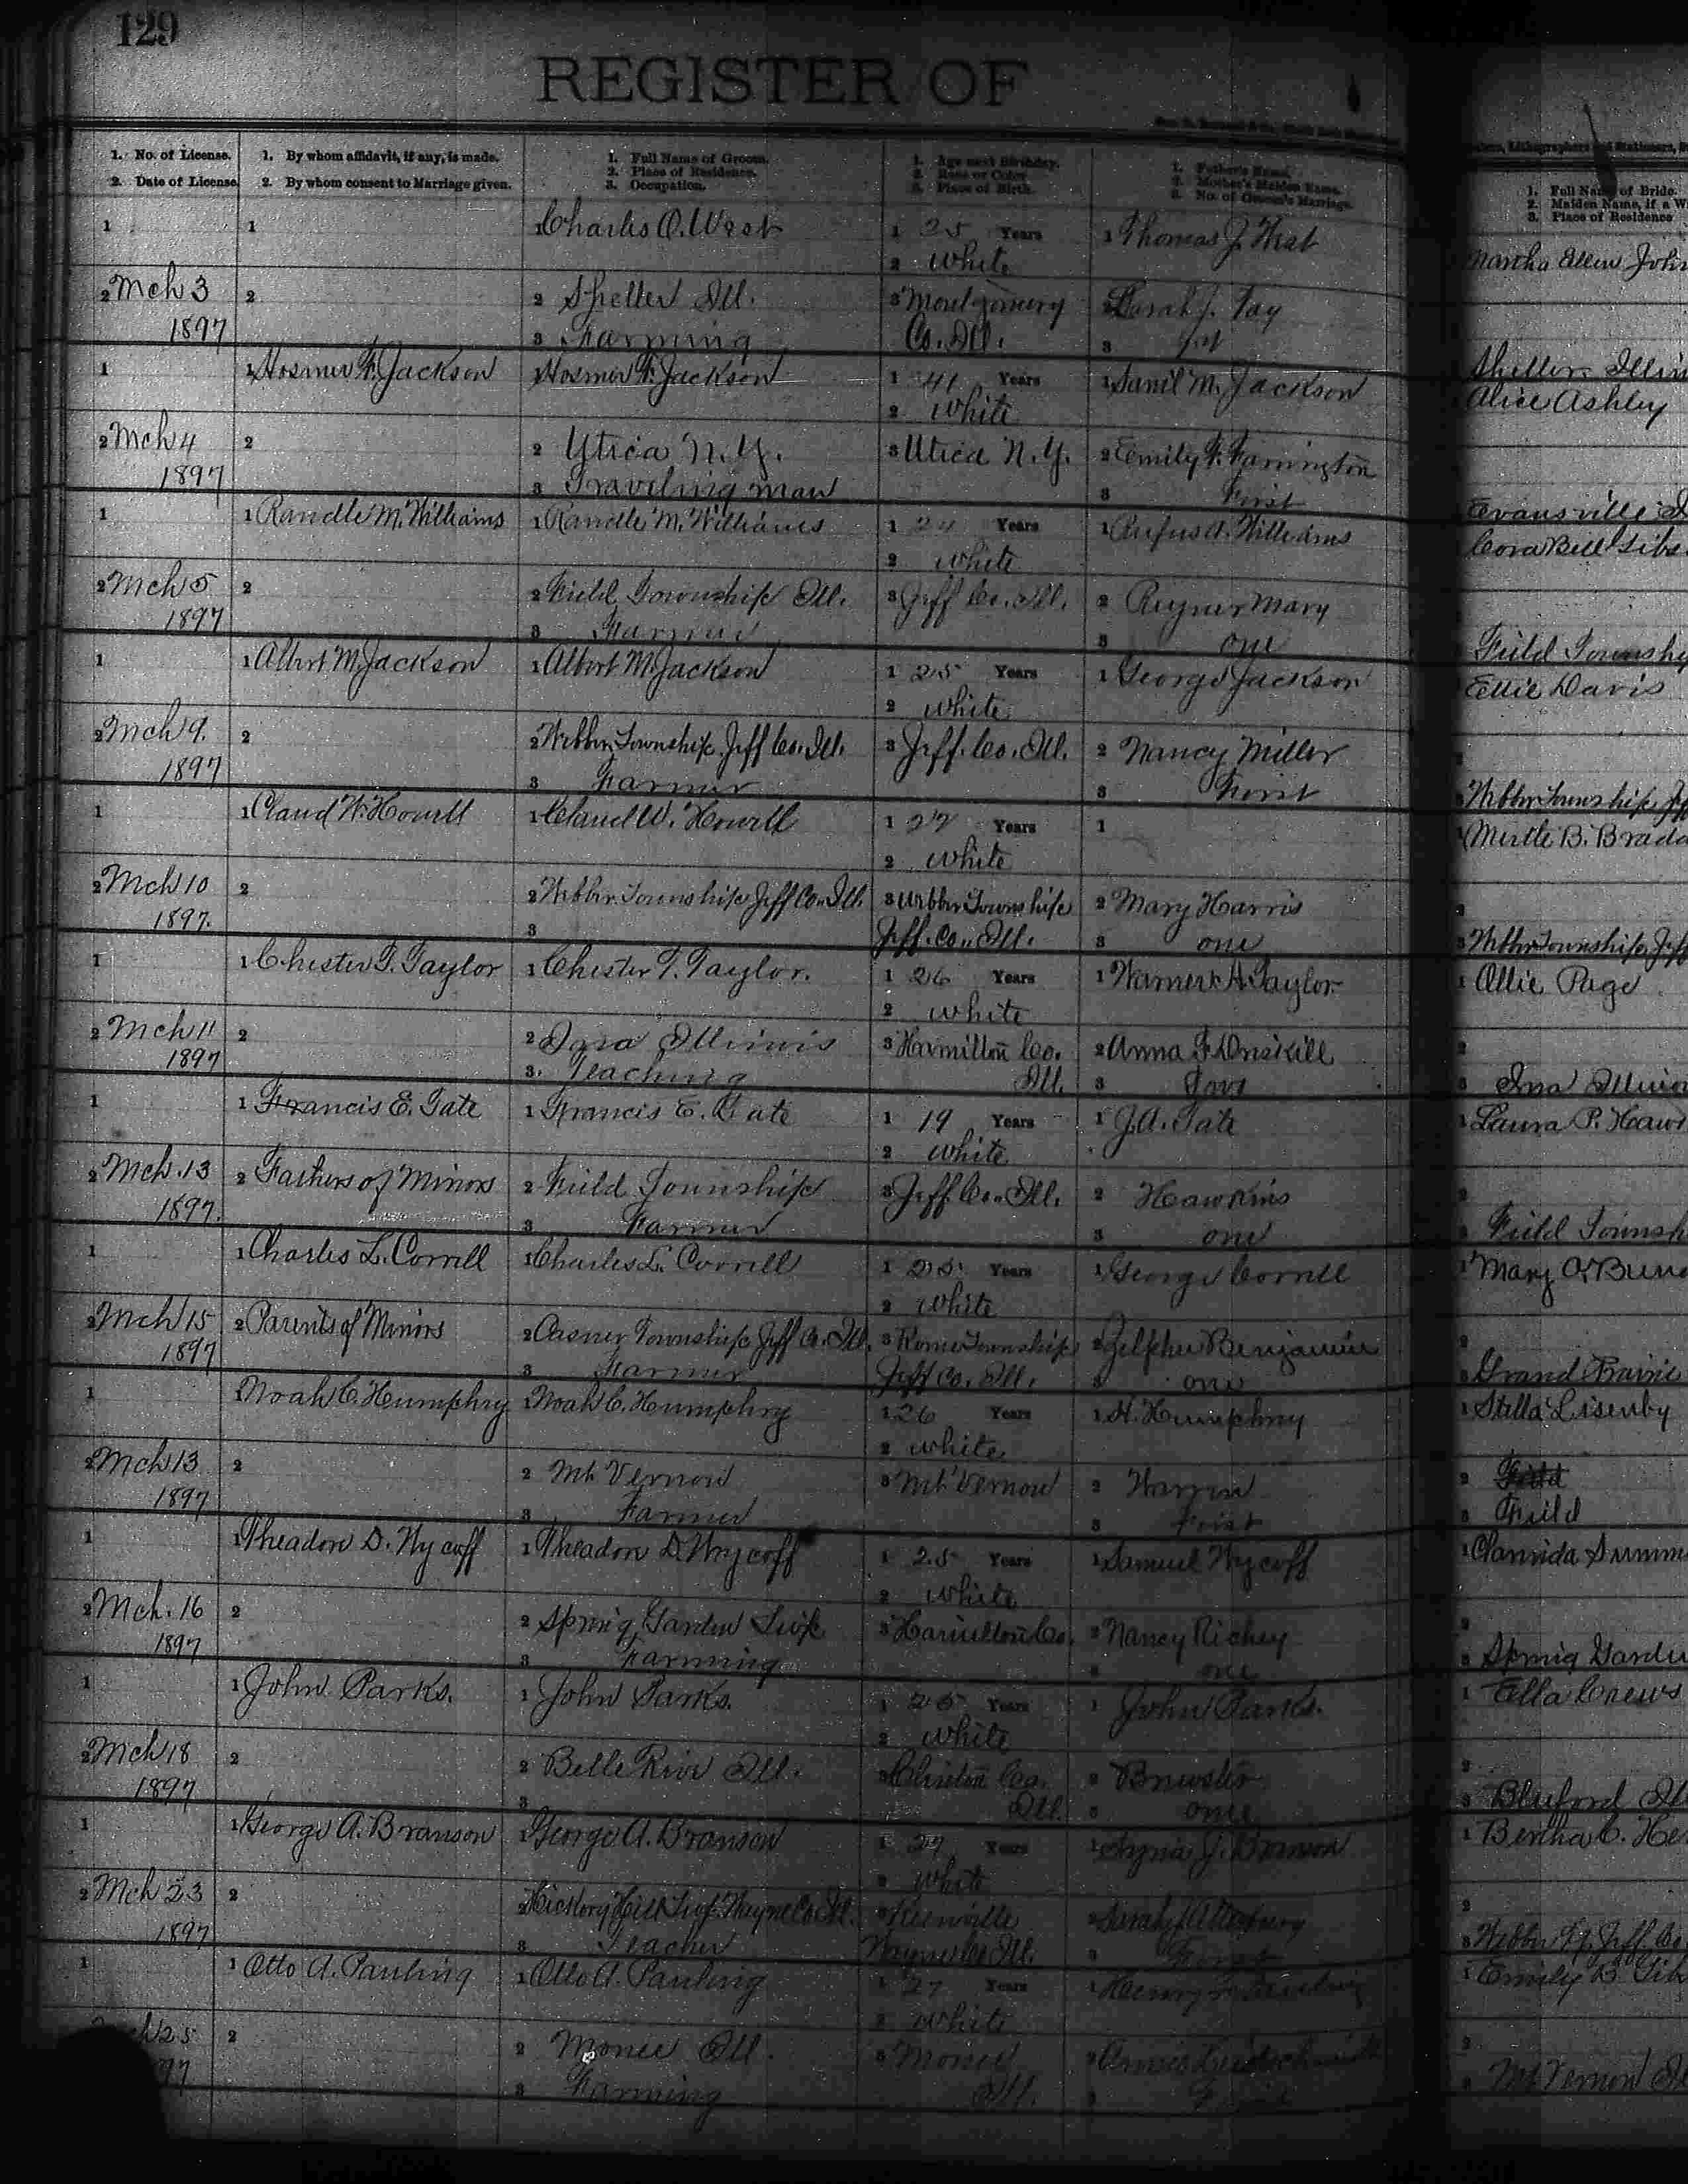 129
REGISTER OF
1. No. of License.
2. Date of License.
1. By whom affidavit, if any, is made.
2. By whom consent to Marriage given.
1. Full Name of Groom.
2. Place of Residence.
3. Occupation.
1. Age next Birthday.
2. Race or Color
3. Place of Birth.
1. Father's Name.
2. Mother's Maiden Name.
3. No. of Groom's Marriage.
1. Full Name of Bride.
2. Maiden Name, if a Wi
3. Place of Residence
1 1 1 Charles O. West 1 25 Years 1 Thomas J. West
2 White Martha Ellen John
2 Mch 3 2 2 Sheller Ill. 3 Montgomery 2 Sarah J. Fay
1897 3 Farming Co. Ill. 3 1st
Sheller Illin
1 1 Hosmer F. Jackson 1 Hosmer F. Jackson 1 41 Years 1 Sanil M. Jackson
2 White Alice Ashley
2 Mch 4 2 2 Utica N.Y. 3 Utica N.Y. 2 Emily F. Farrington
1897 3 Traveling man 3 First
Evansville
1 1 Randle M. Williams 1 Randle M. Williams 1 24 Years 1 Rufus A. Williams
2 White Cora Bell
2 Mch 5 2 2 Field Township Ill. 3 Jeff Co. Ill. 2 Mary
1897 3 Farmer 3 one
Field Townshp
1 1 Albert M. Jackson 1 Albert M. Jackson 1 25 Years 1 George Jackson
2 White Ettie Davis
2 Mch 9. 2 2 Webber Township Jeff Co. Ill. 3 Jeff. Co. Ill. 2 Nancy Miller
1897 3 Farmer 3 First
3 Webber Township Jef
1 1 Claud W. Howell 1 Claud W. Howell 1 27 Years 1
2 White 1 Mirtle B. Brad
2 Mch 10 2 2 Webber Township Jeff Co. Ill. 3 Webber Township 2 Mary Harris
1897. 3 Jeff. Co. Ill. 3 one
3 Webber Township Jeff
1 1 Chester T. Taylor 1 Chester T. Taylor. 1 26 Years 1 Warner H. Taylor
2 White 1 Ollie Page
2 Mch 11 2 2 Illinois 3 Hamilton Co. 2 Anna F. Driskill
1897 3. Teaching Ill. 3
3 Ina Illinoi
1 1 Francis E. Tate 1 Francis E. Tate 1 19 Years 1 J.A. Tate
2 White 1 Laura P. Haw
2 Mch. 13 2 Fathers of Minors 2 Field Township 3 Jeff Co. Ill. 2 Hawkins
1897. 3 Farmer 3 one
3 Field Townsh
1 1 Charles L. Correll 1 Charles L. Correll 1 25 Years 1 George Correll
2 White 1 Mary O. Bun
2 Mch 15 2 Parents of Minors 2 Casner Township Jeff Co. Ill. 3 Rome Township 2 Zilpha Benjamin
1897 3 Farmer Jeff Co. Ill. 3 one
3 Grand Prairie
1 Noah C. Humphry 1 Noah C. Humphry 1 26 Years 1 H. Humphry
2 White 1 Stella Lisenby
2 Mch 13 2 2 Mt Vernon 3 Mt Vernon 2 Warren
1897 3 Farmer 3 First
3 Feild
1 1 Theadore D. Wycoff 1 Theadore D. Wycoff 1 25 Years 1 Samuel Wycoff
2 White 1 Clarinda Summ
2 Mch. 16 2 2 Spring Garden Twp 3 Hamilton Co. 2 Nancy Richey
1897 3 Farming 3 one
3 Spring Garde
1 1 John Parks. 1 John Parks. 1 25 Years 1 John Parks.
2 White 1 Ella Crews
2 Mch 18 2 2 Belle Rive Ill. 3 Clinton Co. 2 Brewster
1897 3 Ill. 3 one
3 Bluford Il
1 1 George A. Branson 1 George A. Branson 1 27 Years 1 J. Branson
2 White 1 Bertha C. He
2 Mch 23 2 2 Hickory Hill Twp. Wayne Co Ill. 3 Keenville 2 Sarah J. Atterbury
1897 3 Teacher Wayne Co Ill. 3 First
3 Webber Tp. Jeff Co
1 1 Otto A. Pauling 1 Otto A. Pauling 1 27 Years 1 Henry
2 White 1 Emily B.
25 2 2 Monee Ill. 3 Monee 2
97 3 Farming Ill. 3
3 Mt Vernon Il